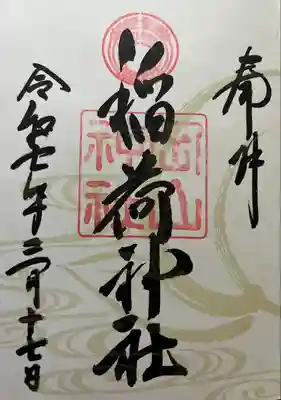 奉拝
稲荷神社
岡山
神社
令和七年二月十七日